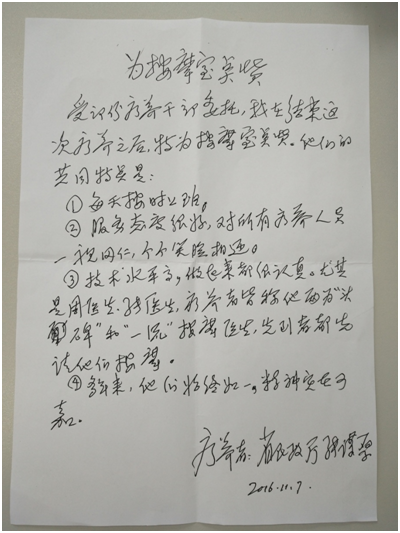 为按摩室点赞
受部份疗养干部委托，我在结束这
次疗养之后，特为按摩室点赞。他们的
共同特点是：
①每天按时上班。
②服务态度很好，对所有疗养人员
一视同仁，个个笑脸相迎。
③技术水平高，做起来都很认真。尤其
是周医生、张医生，疗养者皆称他两为“头
牌”和“一流”按摩医生，先到者都先
请他们按摩。
④多年来，他们始终如一，精神实在可
嘉。
疗养者：省民政厅
2016.11.7.